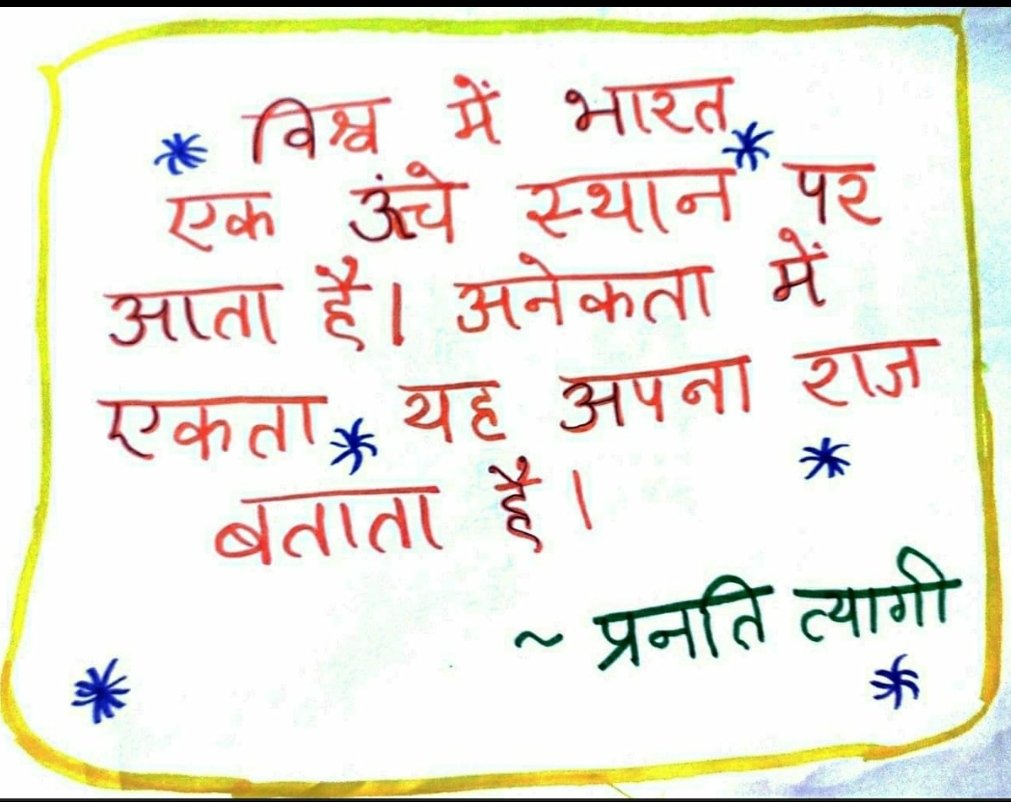 विश्व में भारत
एक ऊंचे स्थान पर
आता है। अनेकता में
एकता यह अपना राज
बताता है।
~ प्रनति त्यागी